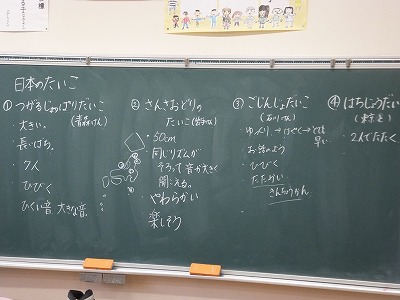 日本のたいこ
①つがるじょっぱりだいこ
(青森けん)
・大きい。
・長いばち。
・7人
・ひびく
・ひくい音 大きな音。
② さんさおどりの
たいこ(岩手けん)
・50cm
・同じリズムが
そろって音が大きく
聞こえる。
・やわらかい
楽しそう
③ ごじんじょだいこ
(石川けん)
・ゆっくり→はやく→とても
早い
・お話のよう
・ひびく
・たたかい
きんちょうかん。
④ はちじょうだいこ
(東京と)
・2人でたたく